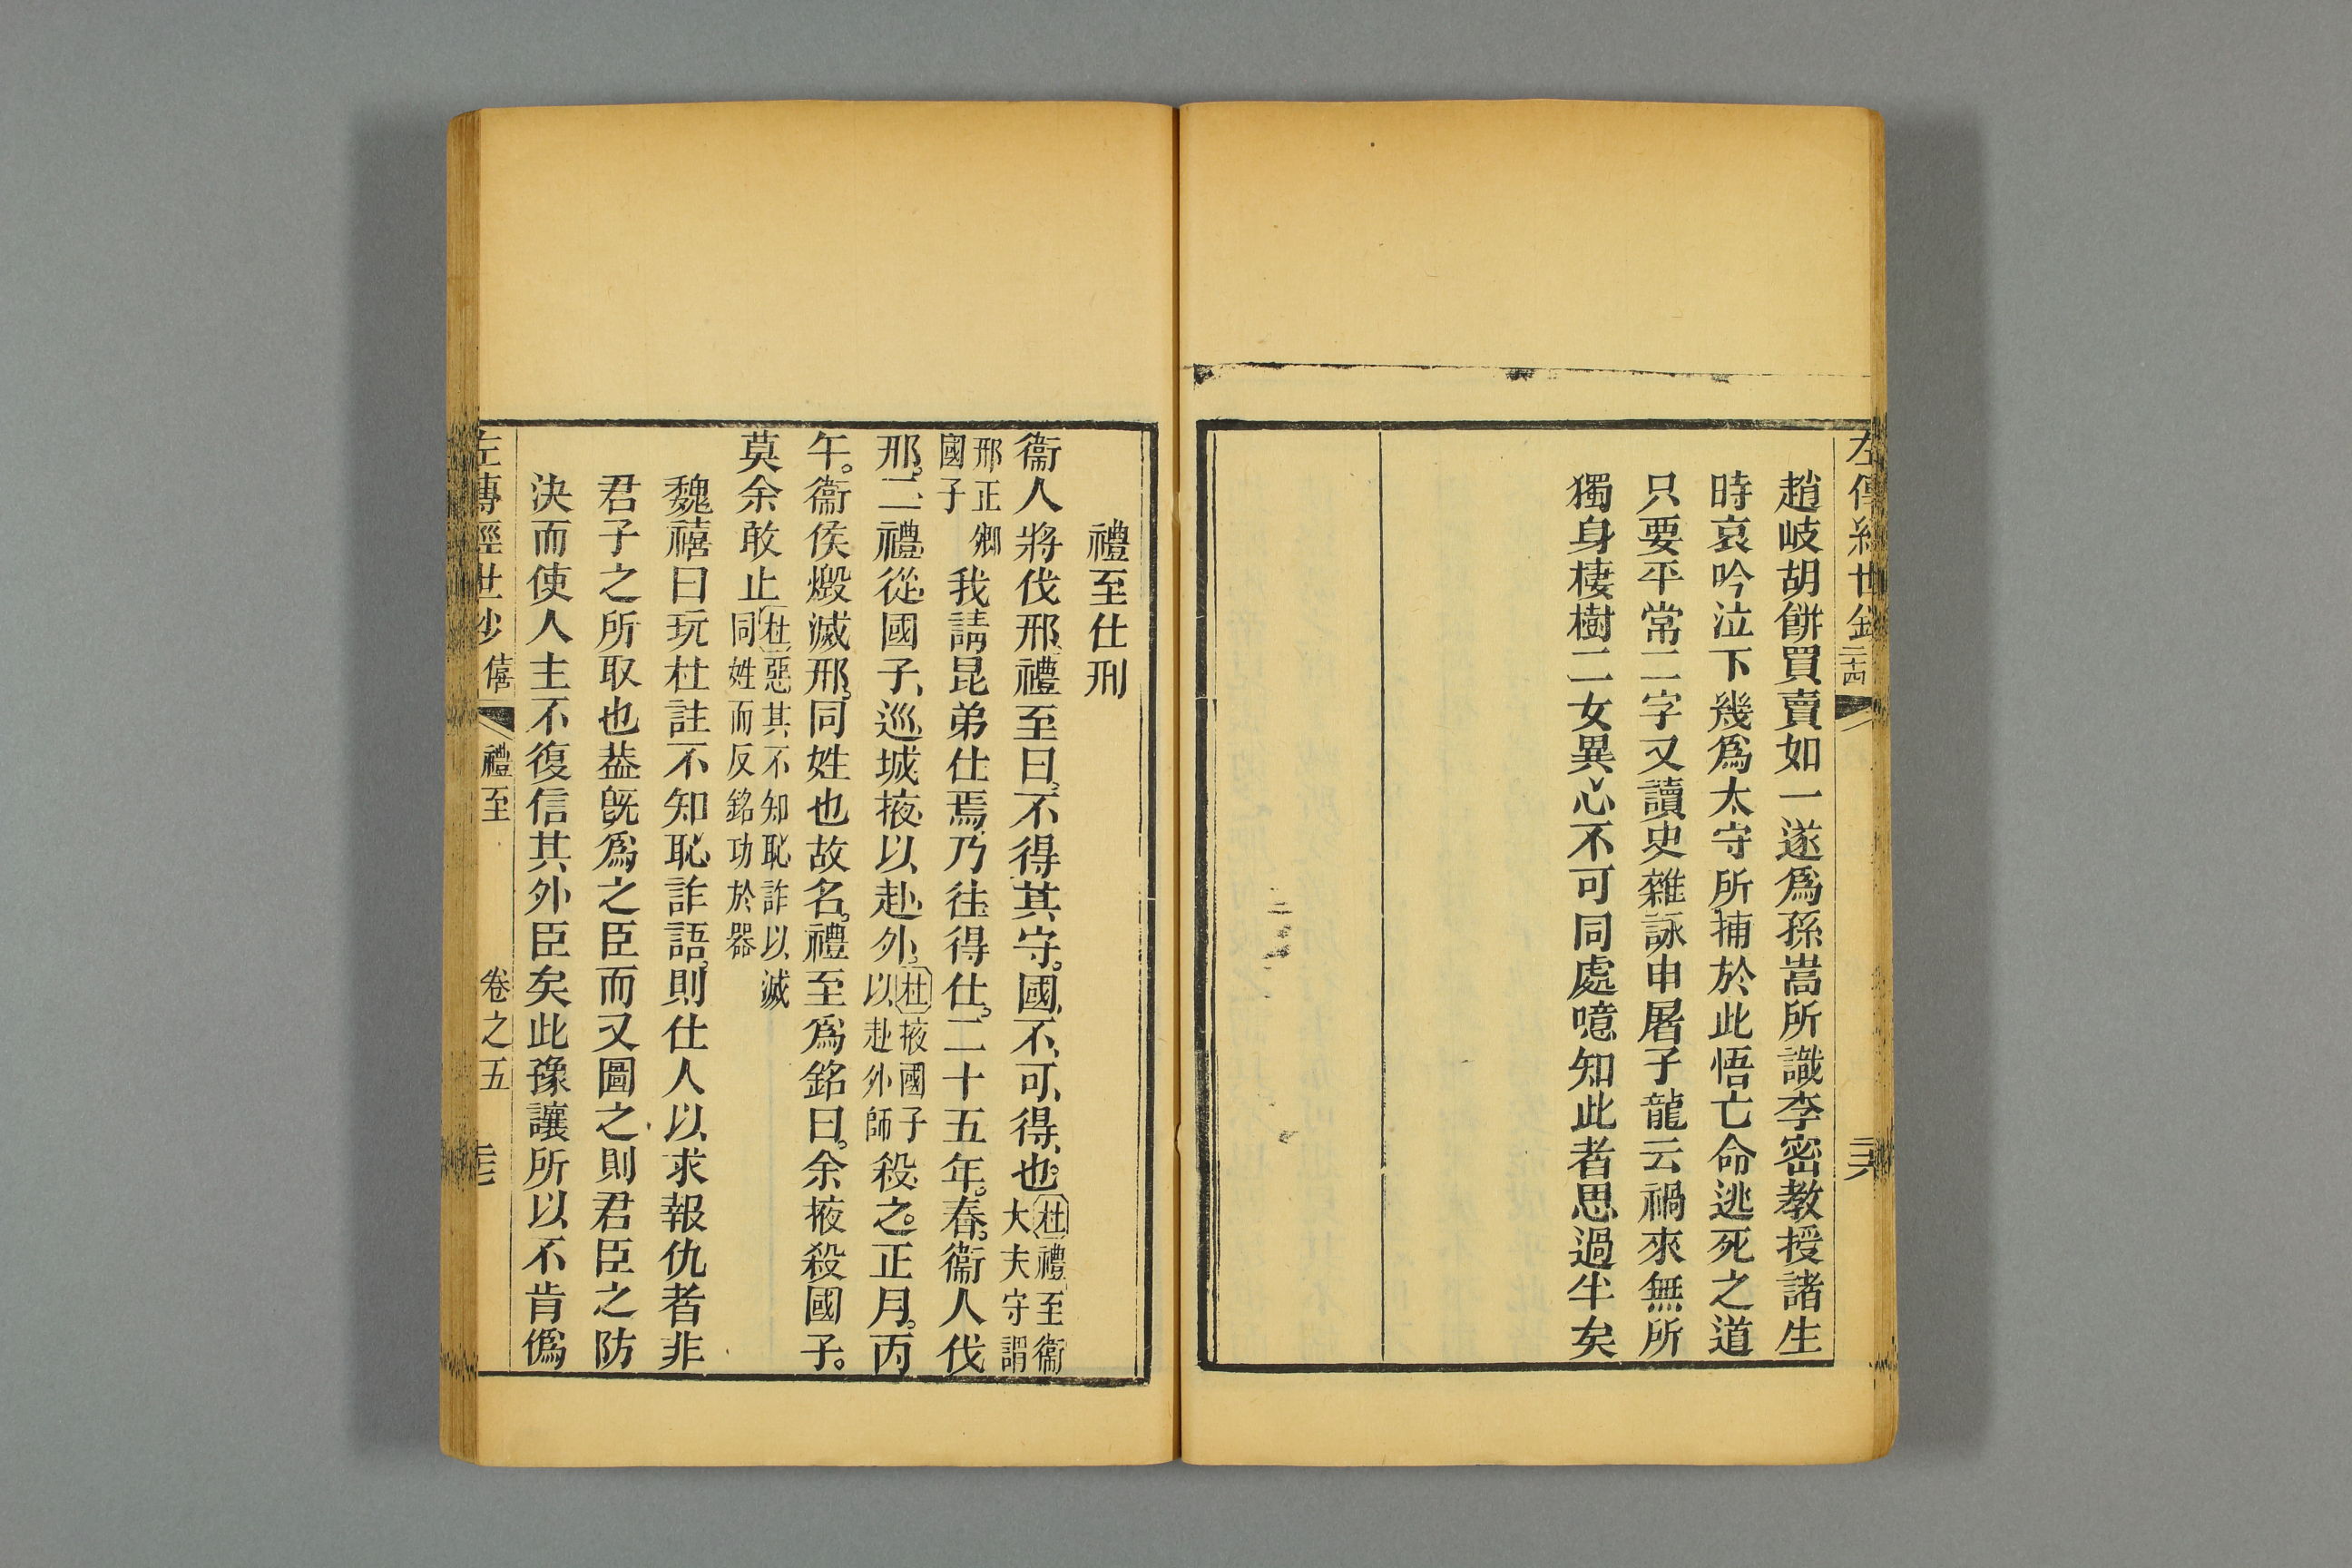 左傳經世鈔 二十四 三六
趙岐胡餅買賣如一遂爲孫嵩所識李密教授諸生
時哀吟泣下幾爲太守所捕於此悟亡命逃死之道
只要平常二字又讀史雜詠申屠子龍云禍來無所
獨身棲樹二女異心不可同處噫知此者思過半矣
禮至仕刑
衞人將伐邢禮至曰。不得其守。國、不、可、得、也。杜禮至衞大夫守謂
邢正卿國子我請昆弟仕焉。乃往得仕。二十五年。春。衞人伐
邢。二禮從國子、巡城掖以赴外。杜掖國子以赴外師殺之。正月。丙
午。衞侯燬滅邢。同姓也故名。禮至爲銘曰。余掖殺國子。
莫余敢止杜惡其不知恥詐以滅同姓而反銘功於器
魏禧曰玩杜註不知恥詐語則仕人以求報仇者非
君子之所取也葢旣爲之臣而又圖之則君臣之防
決而使人主不復信其外臣矣此豫讓所以不肯僞
左傳經世鈔 僖 禮至 卷之五